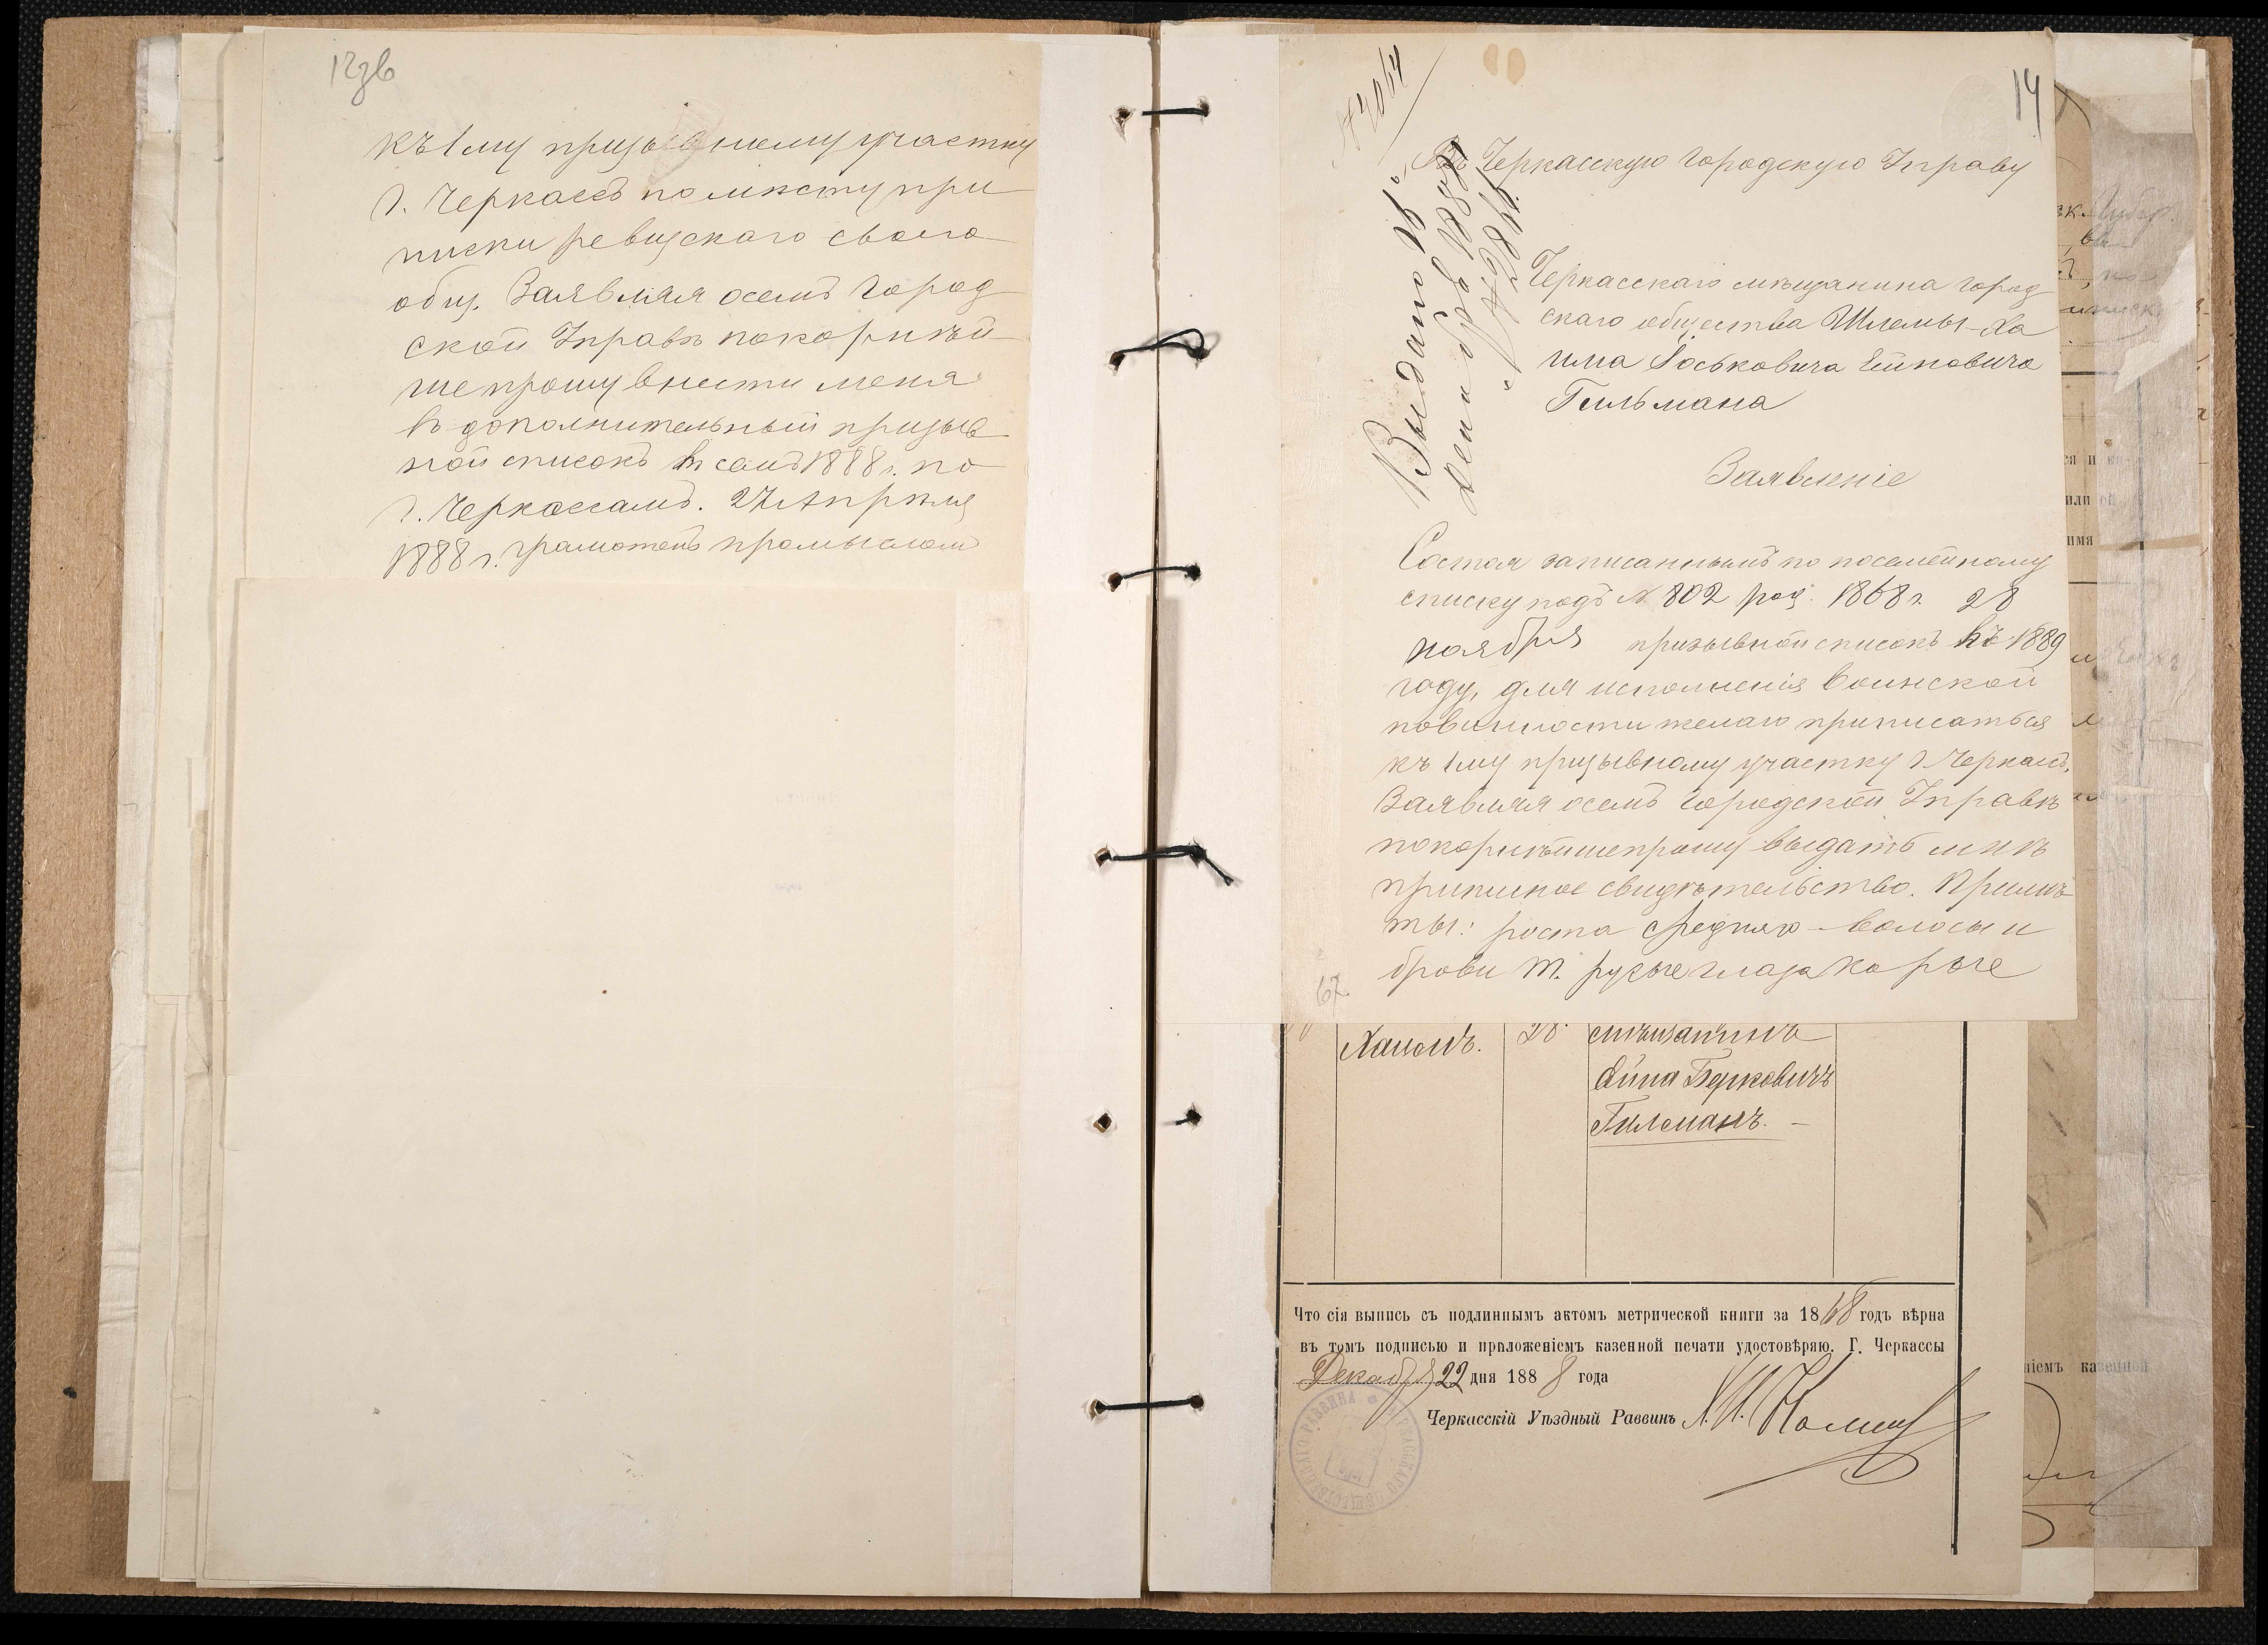 12зв
къ 1му призывному участку
г. Черкассъ по мѣсту при
писки ревизскаго своего
общ. Заявляя осемъ Город
ской Управѣ покорнѣй
ше прошу внести меня
въ дополнительный призыв
ной списокъ 1888 г. по
г. Черкассамъ. 27 Апрѣля
1888 г. грамотенъ промысломъ
14
№ 4064
Въ Черкасскую Городскую Управу
Выдано
1888
Черкасскаго мѣщанина город
скаго общества Шлемы-Ха
има Іоськовича Ейновича
Гильмана
Заявленіе
Состоя записаннымъ по посемейному
списку подъ № 802 род. 1868 г. 28
ноября призывной списокъ къ 1889
году, для исполненія воинской
повинности желаю приписаться
къ 1му призывному участку г. Черкассъ,
Заявляя осемъ Городской Управѣ
покорнѣйше прошу выдать мнѣ
приписное свидѣтельство. Примѣ
ты: роста средняго - волосы и
брови т. русые глаза карые
67
Хаимъ. 28 мѣщанинъ
Берковичъ
Гилманъ. -
Что сія выпись съ подлиннымъ актомъ метрической книги за 1868 годъ вѣрна
въ томъ подписью и приложеніемъ казенной печати удостовѣряю. Г. Черкассы
Декабря 22 дня 1888 года
Черкасскій Уѣздный Раввинъ
ніемъ казенной